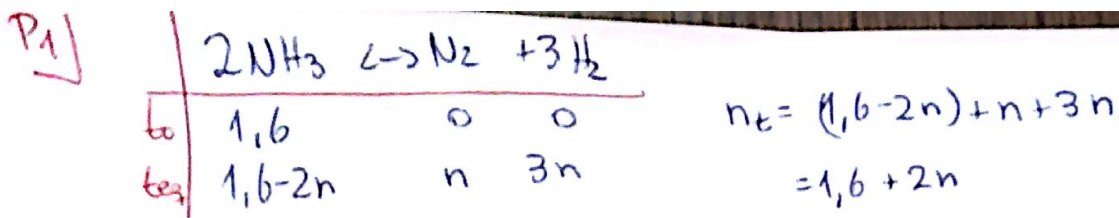 P1
2NH3 <-> N2 +3H2
to 1,6 0 0
teq 1,6-2n n 3n
nt= (1,6-2n)+n+3n
=1,6+2n